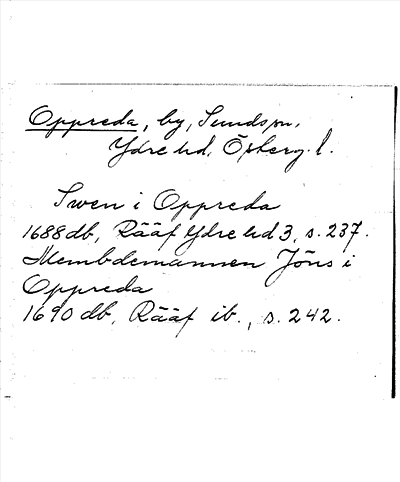 Oppreda, by, Sunds sn,
Ydre hd, Österg. l.
Swen i Oppreda
1688 db, Rääf Ydre hd 3, s. 237.
Nembdemannen Jöns i
Oppreda
1690 db, Rääf ib., s. 242.